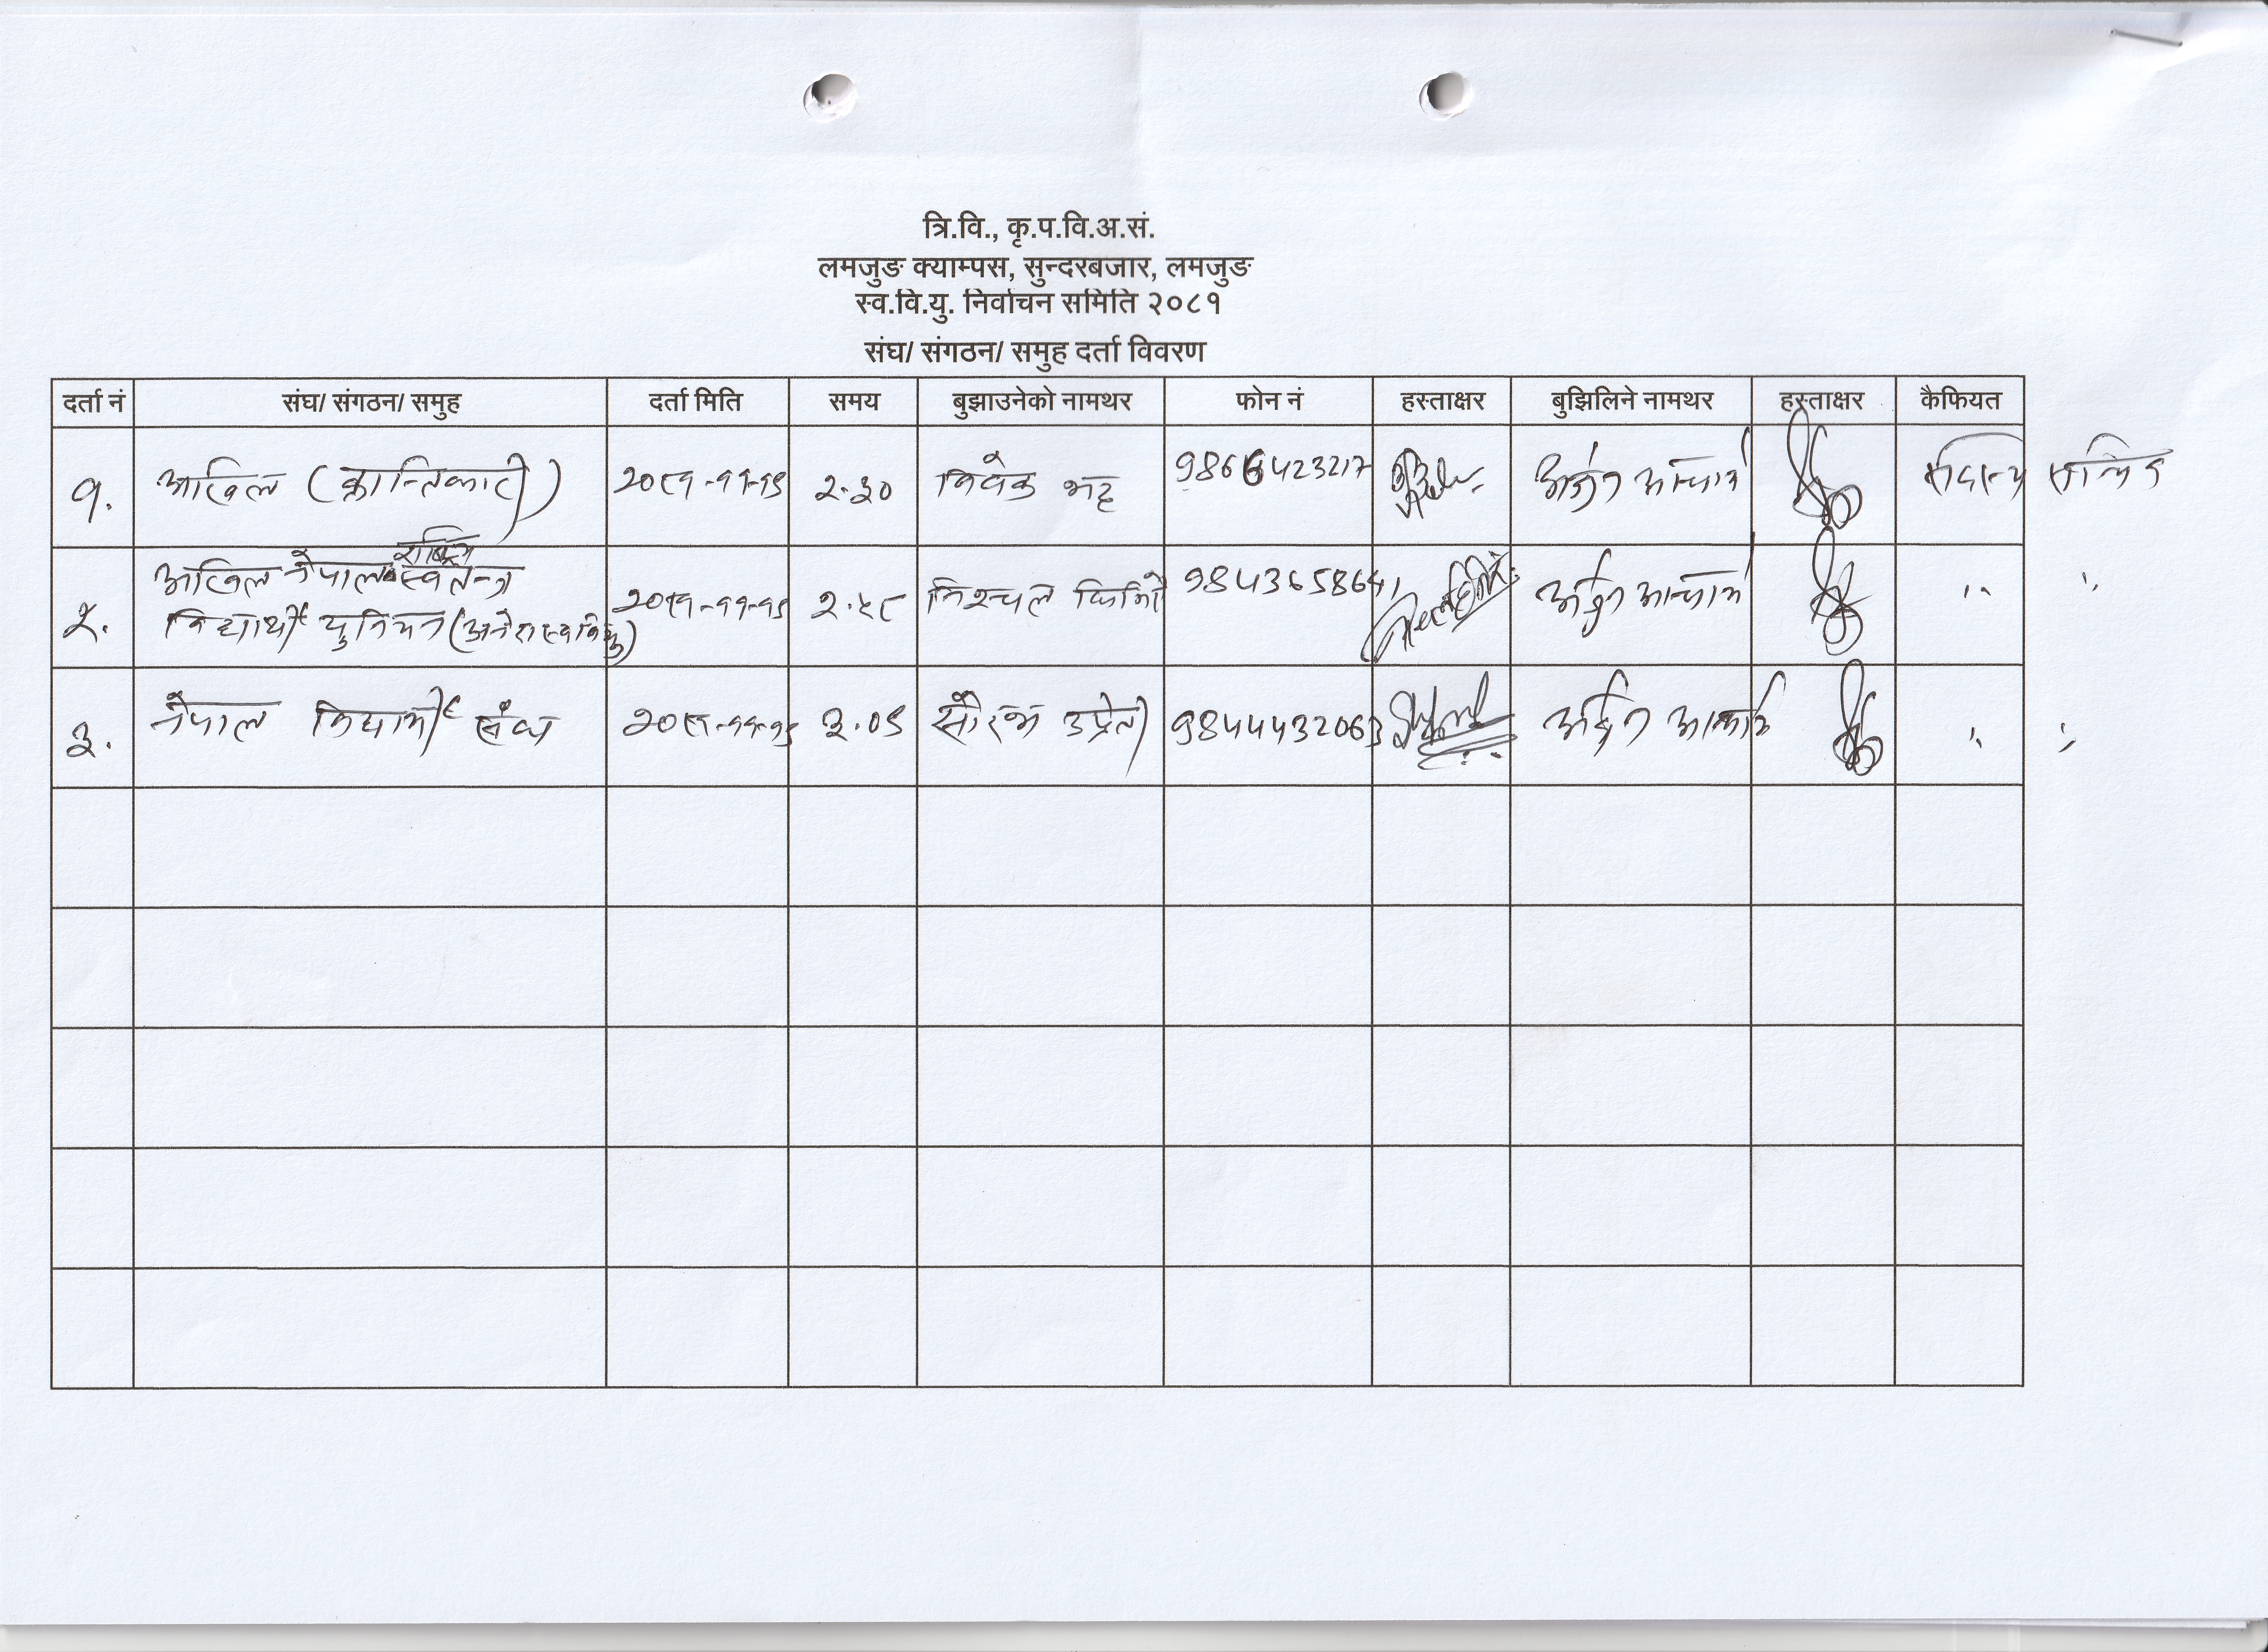 त्रि.वि., कृ.प.वि.अ.सं.
लमजुङ क्याम्पस, सुन्दरबजार, लमजुङ
स्व.वि.यु. निर्वाचन समिति २०८१
संघ/ संगठन/ समुह दर्ता विवरण
दर्ता नं संघ/ संगठन/ समुह दर्ता मिति समय बुझाउनेको नामथर फोन नं हस्ताक्षर बुझिलिने नामथर हस्ताक्षर कैफियत
१. अखिल (क्रान्तिकारी) २०८१-११-१५ २.३० विवेक भट्ट 9866423217 अर्जुन आचार्य सदस्य सचिव
राष्ट्रिय
अखिल नेपाल स्वतन्त्र
२. विद्यार्थी युनियन (अनेरास्ववियु) २०८१-११-१५ २.५८ निश्चल घिमिरे 9843658641 अर्जुन आचार्य " "
३. नेपाल विद्यार्थी संघ २०८१-११-१५ ३.०५ सौरभ उप्रेती 9844432063 अर्जुन आचार्य " "